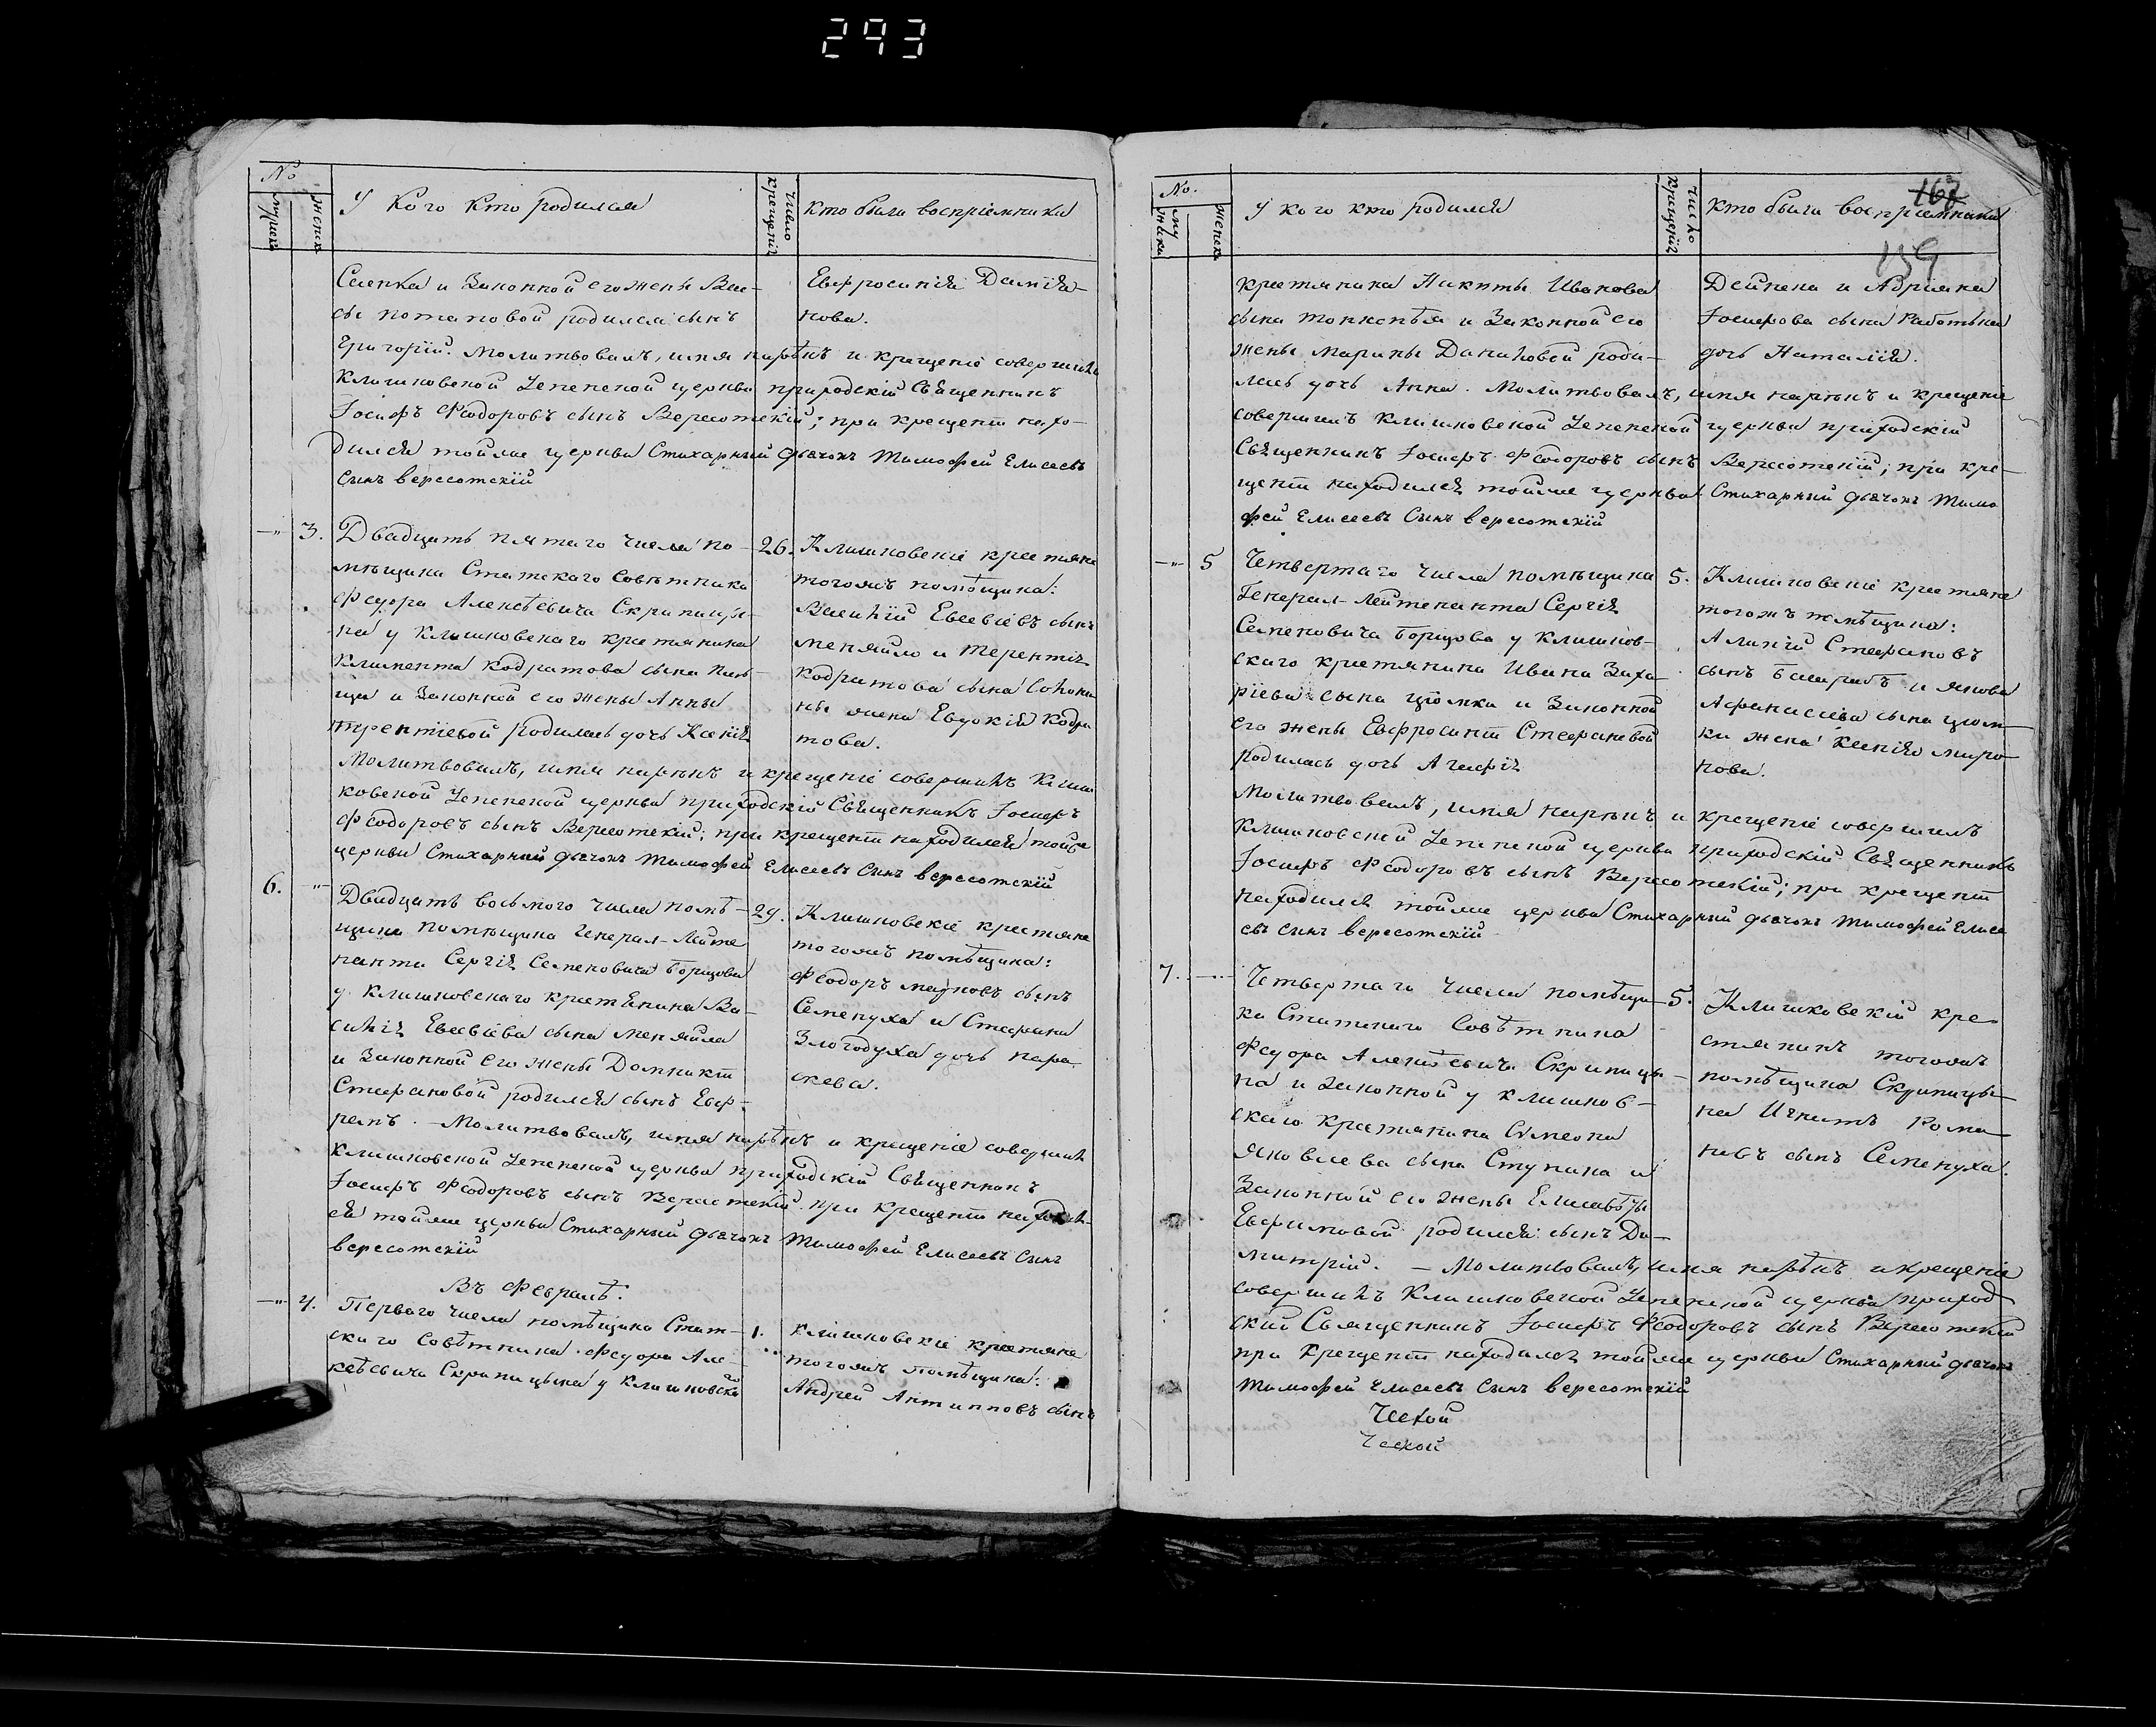 293
№
мужеск
женск
У кого кто родился
число крещенія
кто были воспріемники
Слепка и Законной его жены Васи-
сы Потаповой родился сынъ
Григорій. Молитвовалъ, имя нарѣкъ и крещеніе совершилъ
Клишковской Успенской церкви приходскій Священникъ
Іосифъ Ѳеодоровъ сынъ Вересотскій; при крещеніи нахо-
дился тойже церкви Стихарный дьячокъ Тимофей Елисеевъ
Сынъ вересотскій
Евфросинія Даміа-
нова.
3. Двадцать пятаго числа по-
мѣщика Статскаго Совѣтника
Федора Алексѣевича Скрипицы-
на у Клишковскаго крестянина
Климента Кодратова сына
и Законной его жены Анны
Терентіевой родилась дочь Ксенія
Молитвовалъ, имя нарѣкъ и крещеніе совершилъ Клиш
ковской Успенской церкви приходскій Священникъ Іосифъ
Ѳеодоровъ сынъ Вересотскій; при крещеніи находился тойже
церкви Стихарный дьячокъ Тимофей Елисеевъ Сынъ вересотскій
26. Клишковскіе крестяне
тогожъ помѣщика:
Василій Евсевіевъ сынъ
Меняйло и Терентія
Кодратова сына
жена Евдокія Кодра
това.
6. Двадцать восьмого числа помѣ-
щика помѣщика Генерал-Лейте
нанта Сергія Семеновича Борщова
у Клишковскаго крестянина Ва-
силія Евсевіева сына Меняйла
и Законной его жены Домникіи
Стефановой родился сынъ Евф-
ремъ. - Молитвовалъ, имя нарѣкъ и крещеніе совершилъ
Клишковской Успенской церкви приходскій Священникъ
Іосифъ Ѳеодоровъ сынъ Вересотскій. при крещеніи находил-
ся тойже церкви Стихарный дьячокъ Тимофей Елисеевъ Сынъ
вересотскій
29. Клишковскіе крестяне
тогожъ помѣщика:
Ѳеодоръ сынъ
Семенуха и Стефана
Злогодуха дочь Пара
скева.
Въ Февралѣ.
4. Перваго числа помѣщика Стат-
скаго Совѣтника Федора Але-
ксѣевича Скрипицына у Клишковска
го
1. Клишковскіе крестяне
тогожъ помѣщика:
Андрей Антиповъ сынъ
167
159
№.
мужеск
женск
У кого кто родился
число крещенія
кто были воспріемники
крестянина Никиты Иванова
сына Тонкопѣя и Законной его
жены Марины Даниловой роди-
лась дочь Анна. Молитвовалъ, имя нарѣкъ и крещеніе
совершилъ Клишковской Успенской церкви приходскій
Священникъ Іосифъ Ѳеодоровъ сынъ Вересотскій; при кре-
щеніи находился тойже церкви Стихарный дьячокъ Тимо
фей Елисеевъ Сынъ вересотскій
Дейнека и Адріана
Іосифова сына
дочь Наталія.
5 Четвертаго числа помѣщика
Генерал-Лейтенанта Сергія
Семеновича Борщова у Клишков-
скаго крестянина Ивана Заха-
ріева сына Цюпка и Законной
его жены Евфросиніи Стефановой
родилась дочь Агафія
Молитвовалъ, имя нарѣкъ и крещеніе совершилъ
Клишковской Успенской церкви приходскій Священникъ
Іосифъ Ѳеодоровъ сынъ Вересотскій; при крещеніи
находился тойже церкви Стихарный дьячокъ Тимофей Елисе
евъ сынъ вересотскій
5. Клишковскіе крестяне
тогожъ помѣщика:
Алипій Стефановъ
сынъ и Якова
Афанасіева сына Цюп-
ки жена Ксенія Миро
нова.
7. Четвертаго числа помѣщи-
ка Статскаго Совѣтника
Федора Алексѣевича Скрипицы-
на и законной у Клишков-
скаго крестянина Симеона
Яковлева сына Ступика и
Законной его жены Елисаветы
Евфимовой родился сынъ Ди-
митрій. - Молитвовалъ, имя нарѣкъ и крещеніе
совершилъ Клишковской Успенской церкви приход
скій Священникъ Іосифъ Ѳеодоровъ сынъ Вересотскій
при крещеніи находился тойже церкви Стихарный дьячокъ
Тимофей Елисеевъ Сынъ вересотскій
5. Клишковскій кре
стянинъ тогожъ
помѣщика Скрипицы-
на Игнатъ Рома
новъ сынъ Семенуха.